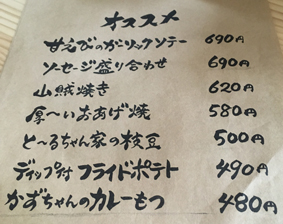 オススメ
甘えびのガーリックソテー 690円
ソーセージ盛り合わせ 690円
山賊焼き 620円
厚〜いおあげ焼 580円
と〜るちゃん家の枝豆 500円
ディップ付フライドポテト 490円
かずちゃんのカレーもつ 480円